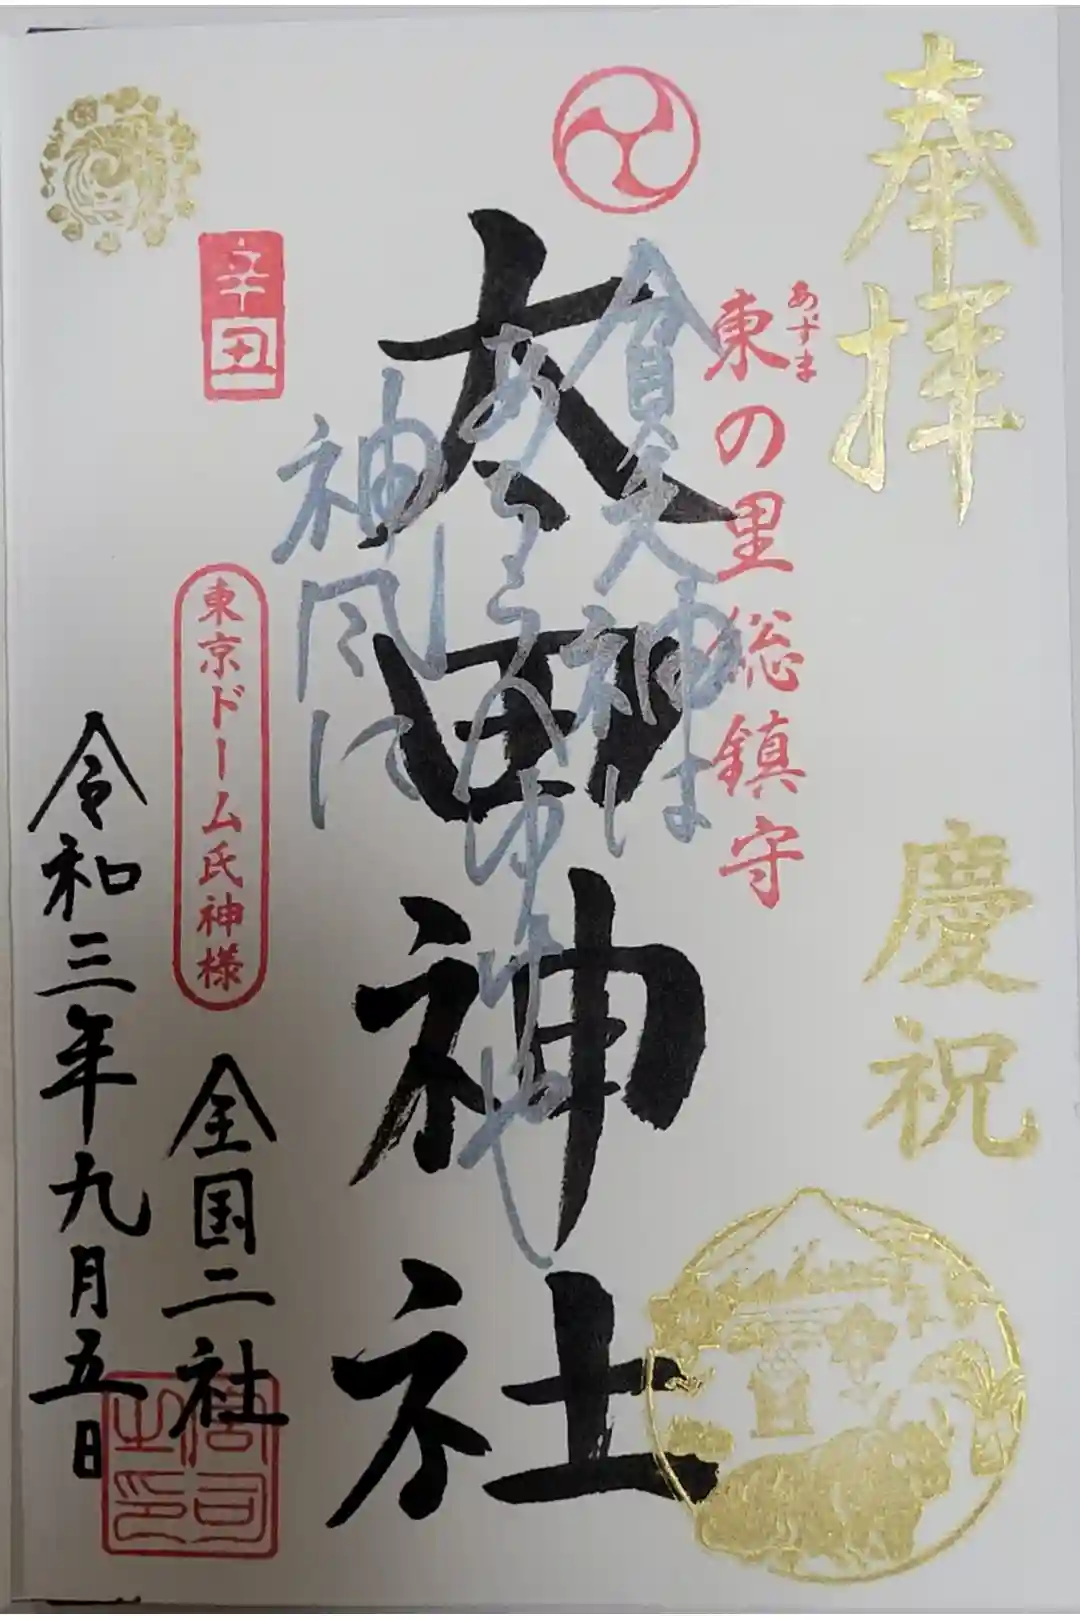 奉拝
慶祝
あずま
東の里総鎮守
太田神社
貧乏神は
神風に
辛丑
東京ドーム氏神様
全国二社
令和三年九月五日
宮司之印